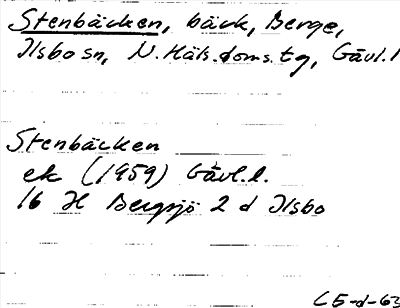 Stenbäcken, bäck, Berge,
Ilsbo sn, N. Häls. doms. tg, Gävl. l
Stenbäcken
ek (1959) Gävl. l.
16 H Bergsjö 2 d Ilsbo
C5-d-63